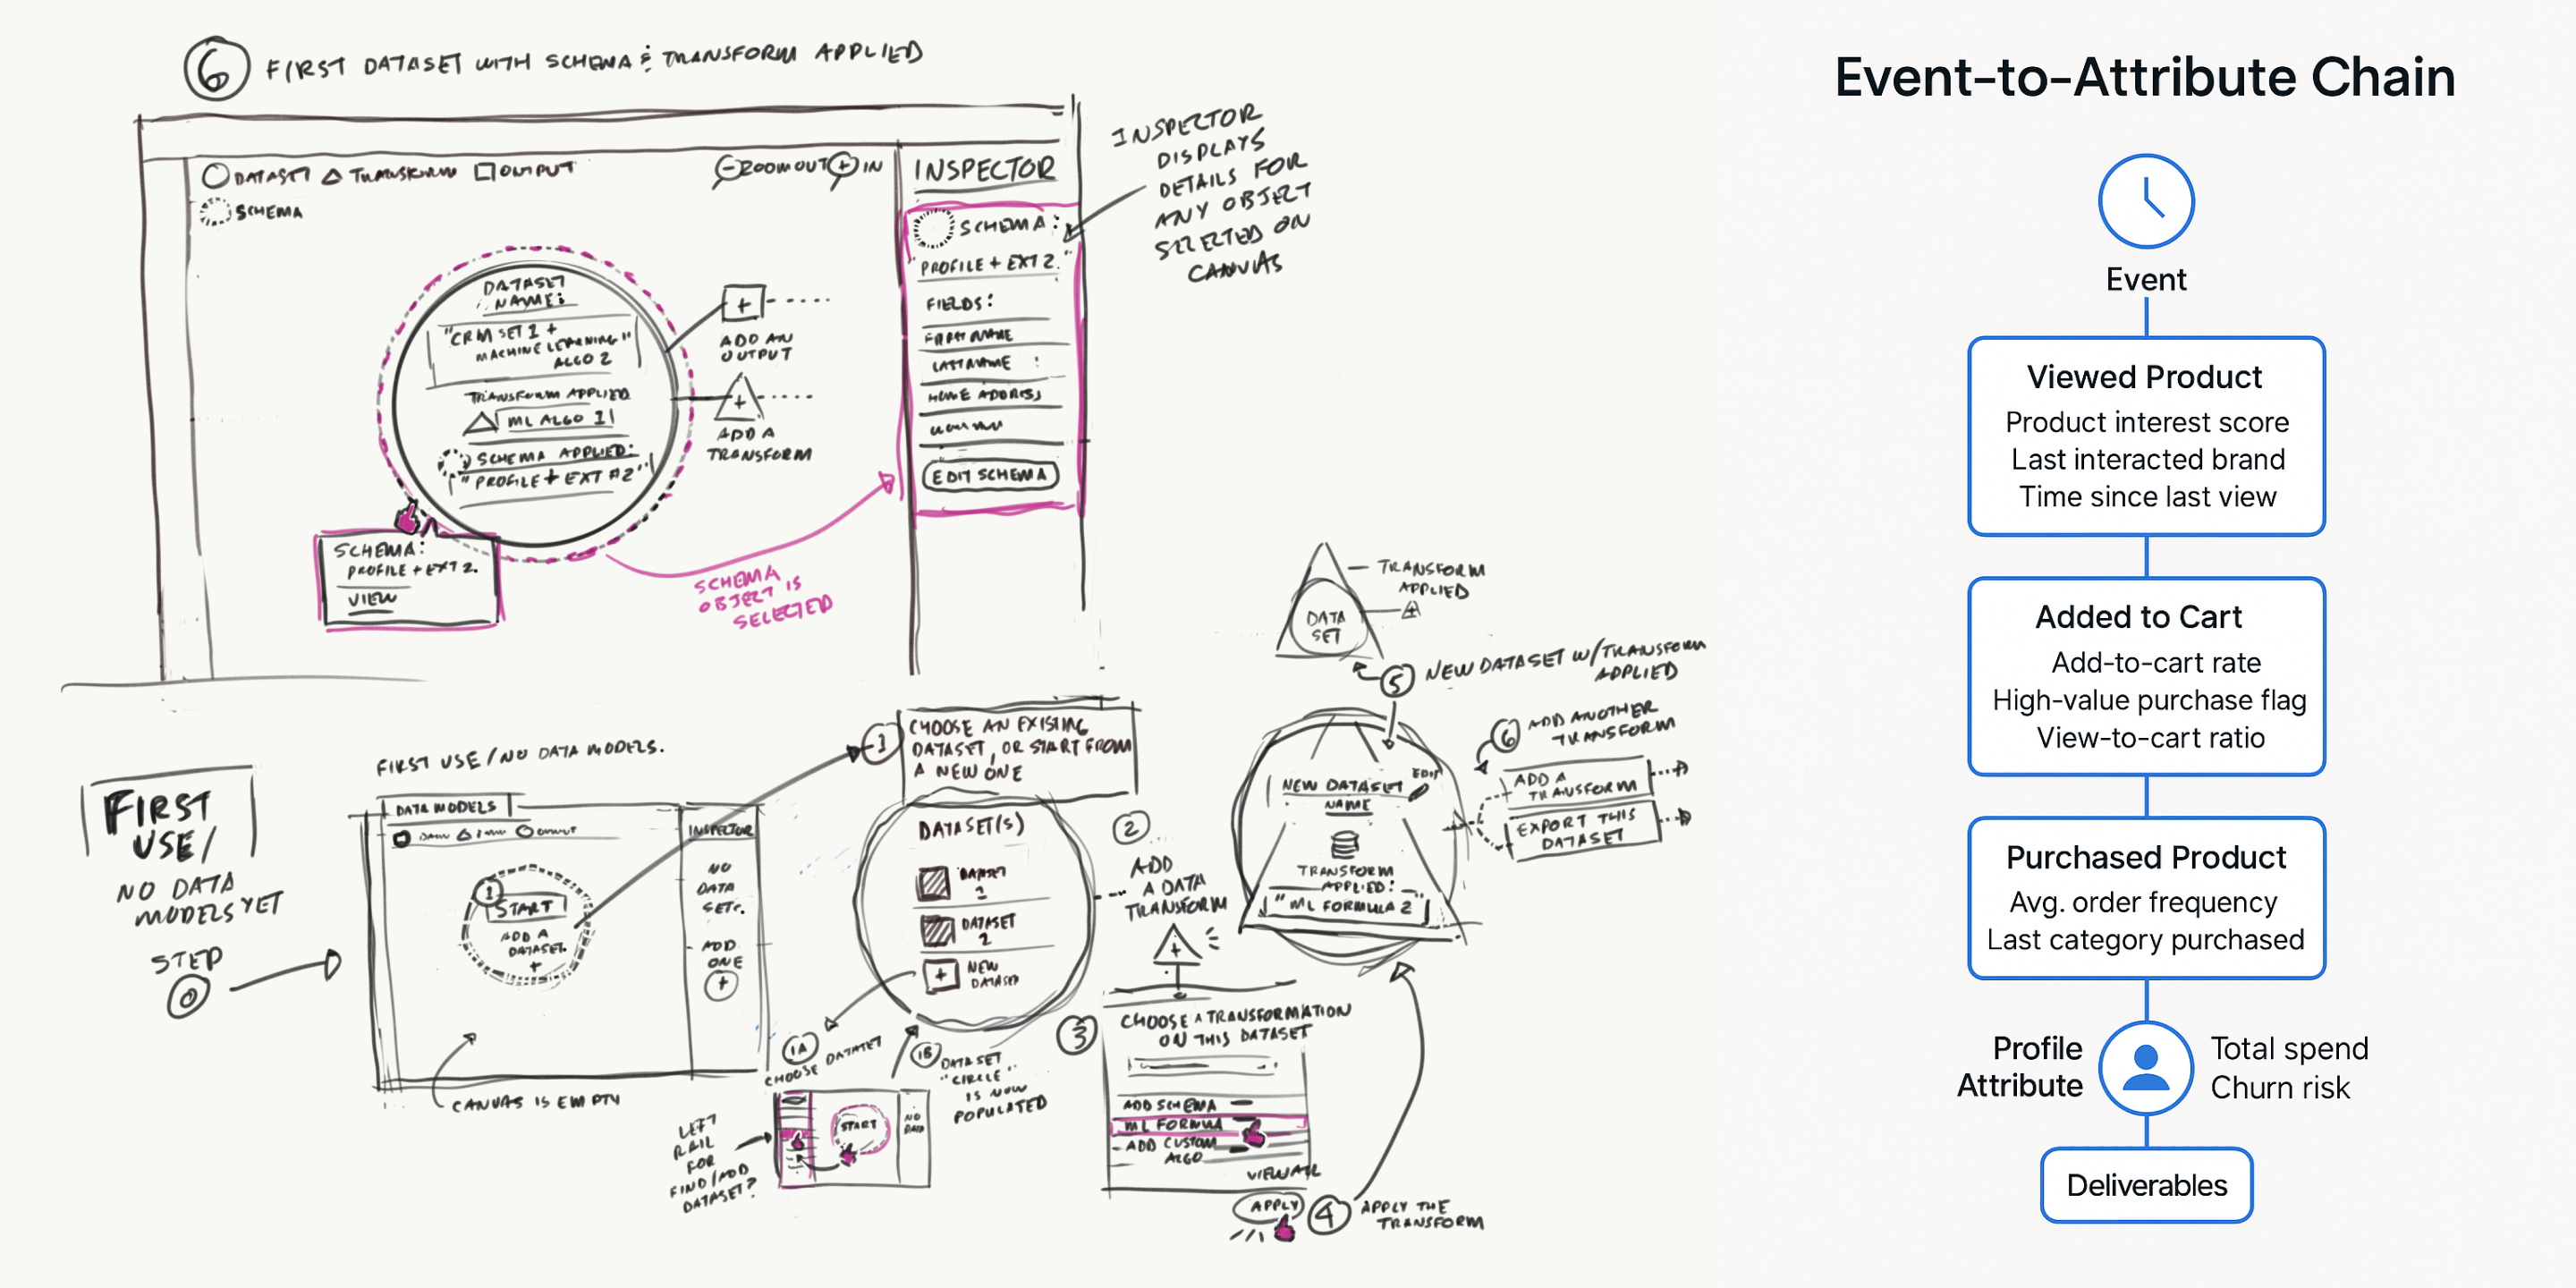 6 FIRST DATASET WITH SCHEMA & TRANSFORM APPLIED
DATASET TRANSFORM OUTPUT
SCHEMA
ZOOM OUT IN
DATASET
NAME:
"CRM SET 1 +
MACHINE LEARNING"
ALGO 2
TRANSFORM APPLIED
ML ALGO 1
SCHEMA APPLIED:
"PROFILE + EXT #2"
ADD AN
OUTPUT
ADD A
TRANSFORM
SCHEMA:
PROFILE + EXT 2.
VIEW
SCHEMA
OBJECT IS
SELECTED
INSPECTOR
SCHEMA:
"PROFILE + EXT 2."
FIELDS:
FIRST NAME
LAST NAME
HOME ADDRESS
EDIT SCHEMA
INSPECTOR
DISPLAYS
DETAILS FOR
ANY OBJECT
SELECTED ON
CANVAS
FIRST
USE/
NO DATA
MODELS YET
STEP
0
FIRST USE / NO DATA MODELS.
DATA MODELS
INSPECTOR
1
START
ADD A
DATASET.
+
NO
DATA
SETS.
ADD
ONE
+
CANVAS IS EMPTY
1
CHOOSE AN EXISTING
DATASET, OR START FROM
A NEW ONE
DATASET(S)
DATASET
1
DATASET
2
+ NEW
DATASET
1A
CHOOSE DATASET
1B DATASET
"CIRCLE"
IS NOW
POPULATED
LEFT
RAIL
FOR
FIND/ADD
DATASET?
START
NO
DATA
2
ADD
A DATA
TRANSFORM
+
3
CHOOSE A TRANSFORMATION
ON THIS DATASET
ADD SCHEMA
ML FORMULA
ADD CUSTOM
ALGO
VIEW ALL
APPLY
4 APPLY THE
TRANSFORM
DATA
SET
TRANSFORM
APPLIED
5 NEW DATASET W/TRANSFORM
APPLIED
NEW DATASET
NAME
EDIT
TRANSFORM
APPLIED:
"ML FORMULA 2"
6 ADD ANOTHER
TRANSFORM
ADD A
TRANSFORM
EXPORT THIS
DATASET
Event-to-Attribute Chain
Event
Viewed Product
Product interest score
Last interacted brand
Time since last view
Added to Cart
Add-to-cart rate
High-value purchase flag
View-to-cart ratio
Purchased Product
Avg. order frequency
Last category purchased
Profile
Attribute
Total spend
Churn risk
Deliverables